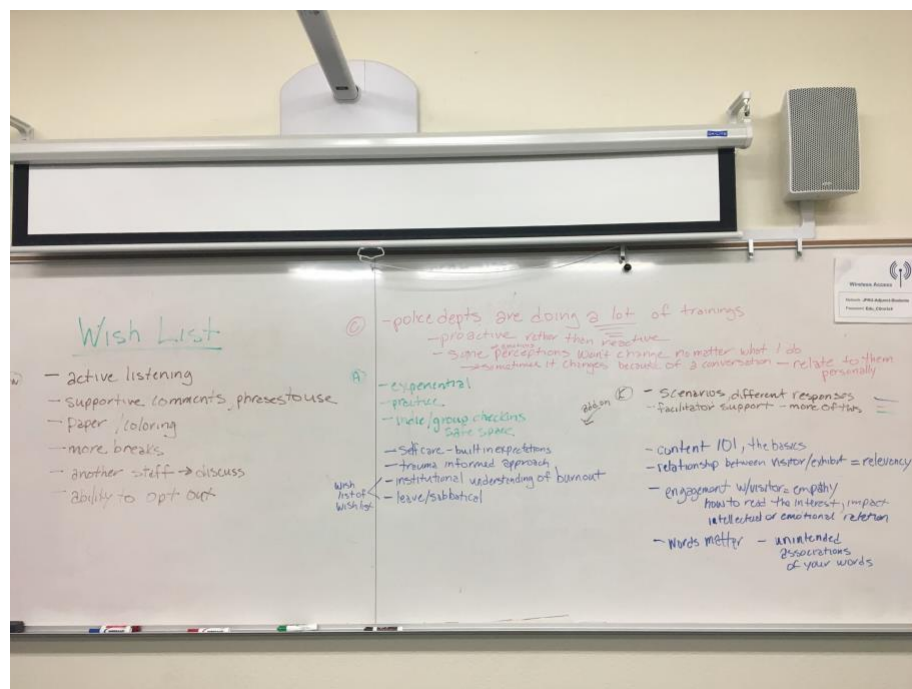 Wireless Access
Wish List
- active listening
- supportive comments, phrases to use
- paper / coloring
- more breaks
- another staff → discuss
- ability to opt out
C - police depts are doing a lot of trainings
- proactive rather then reactive
- some perceptions won't change no matter what I do
→ sometimes it changes because of a conversation - relate to them
personally
A - experiential
- practice
- whole/group checkins
safe space
wish
list of
wish list
- Self care - built in expectations
- trauma informed approach
- institutional understanding of burnout
- leave/sabbatical
add on
K - scenarios, different responses
- facilitator support - more of this
- content 101, the basics
- relationship between visitor/exhibit = relevancy
- engagement w/visitor = empathy
how to read the interest, impact
intellectual or emotional
- words matter - unintended
associations
of your words